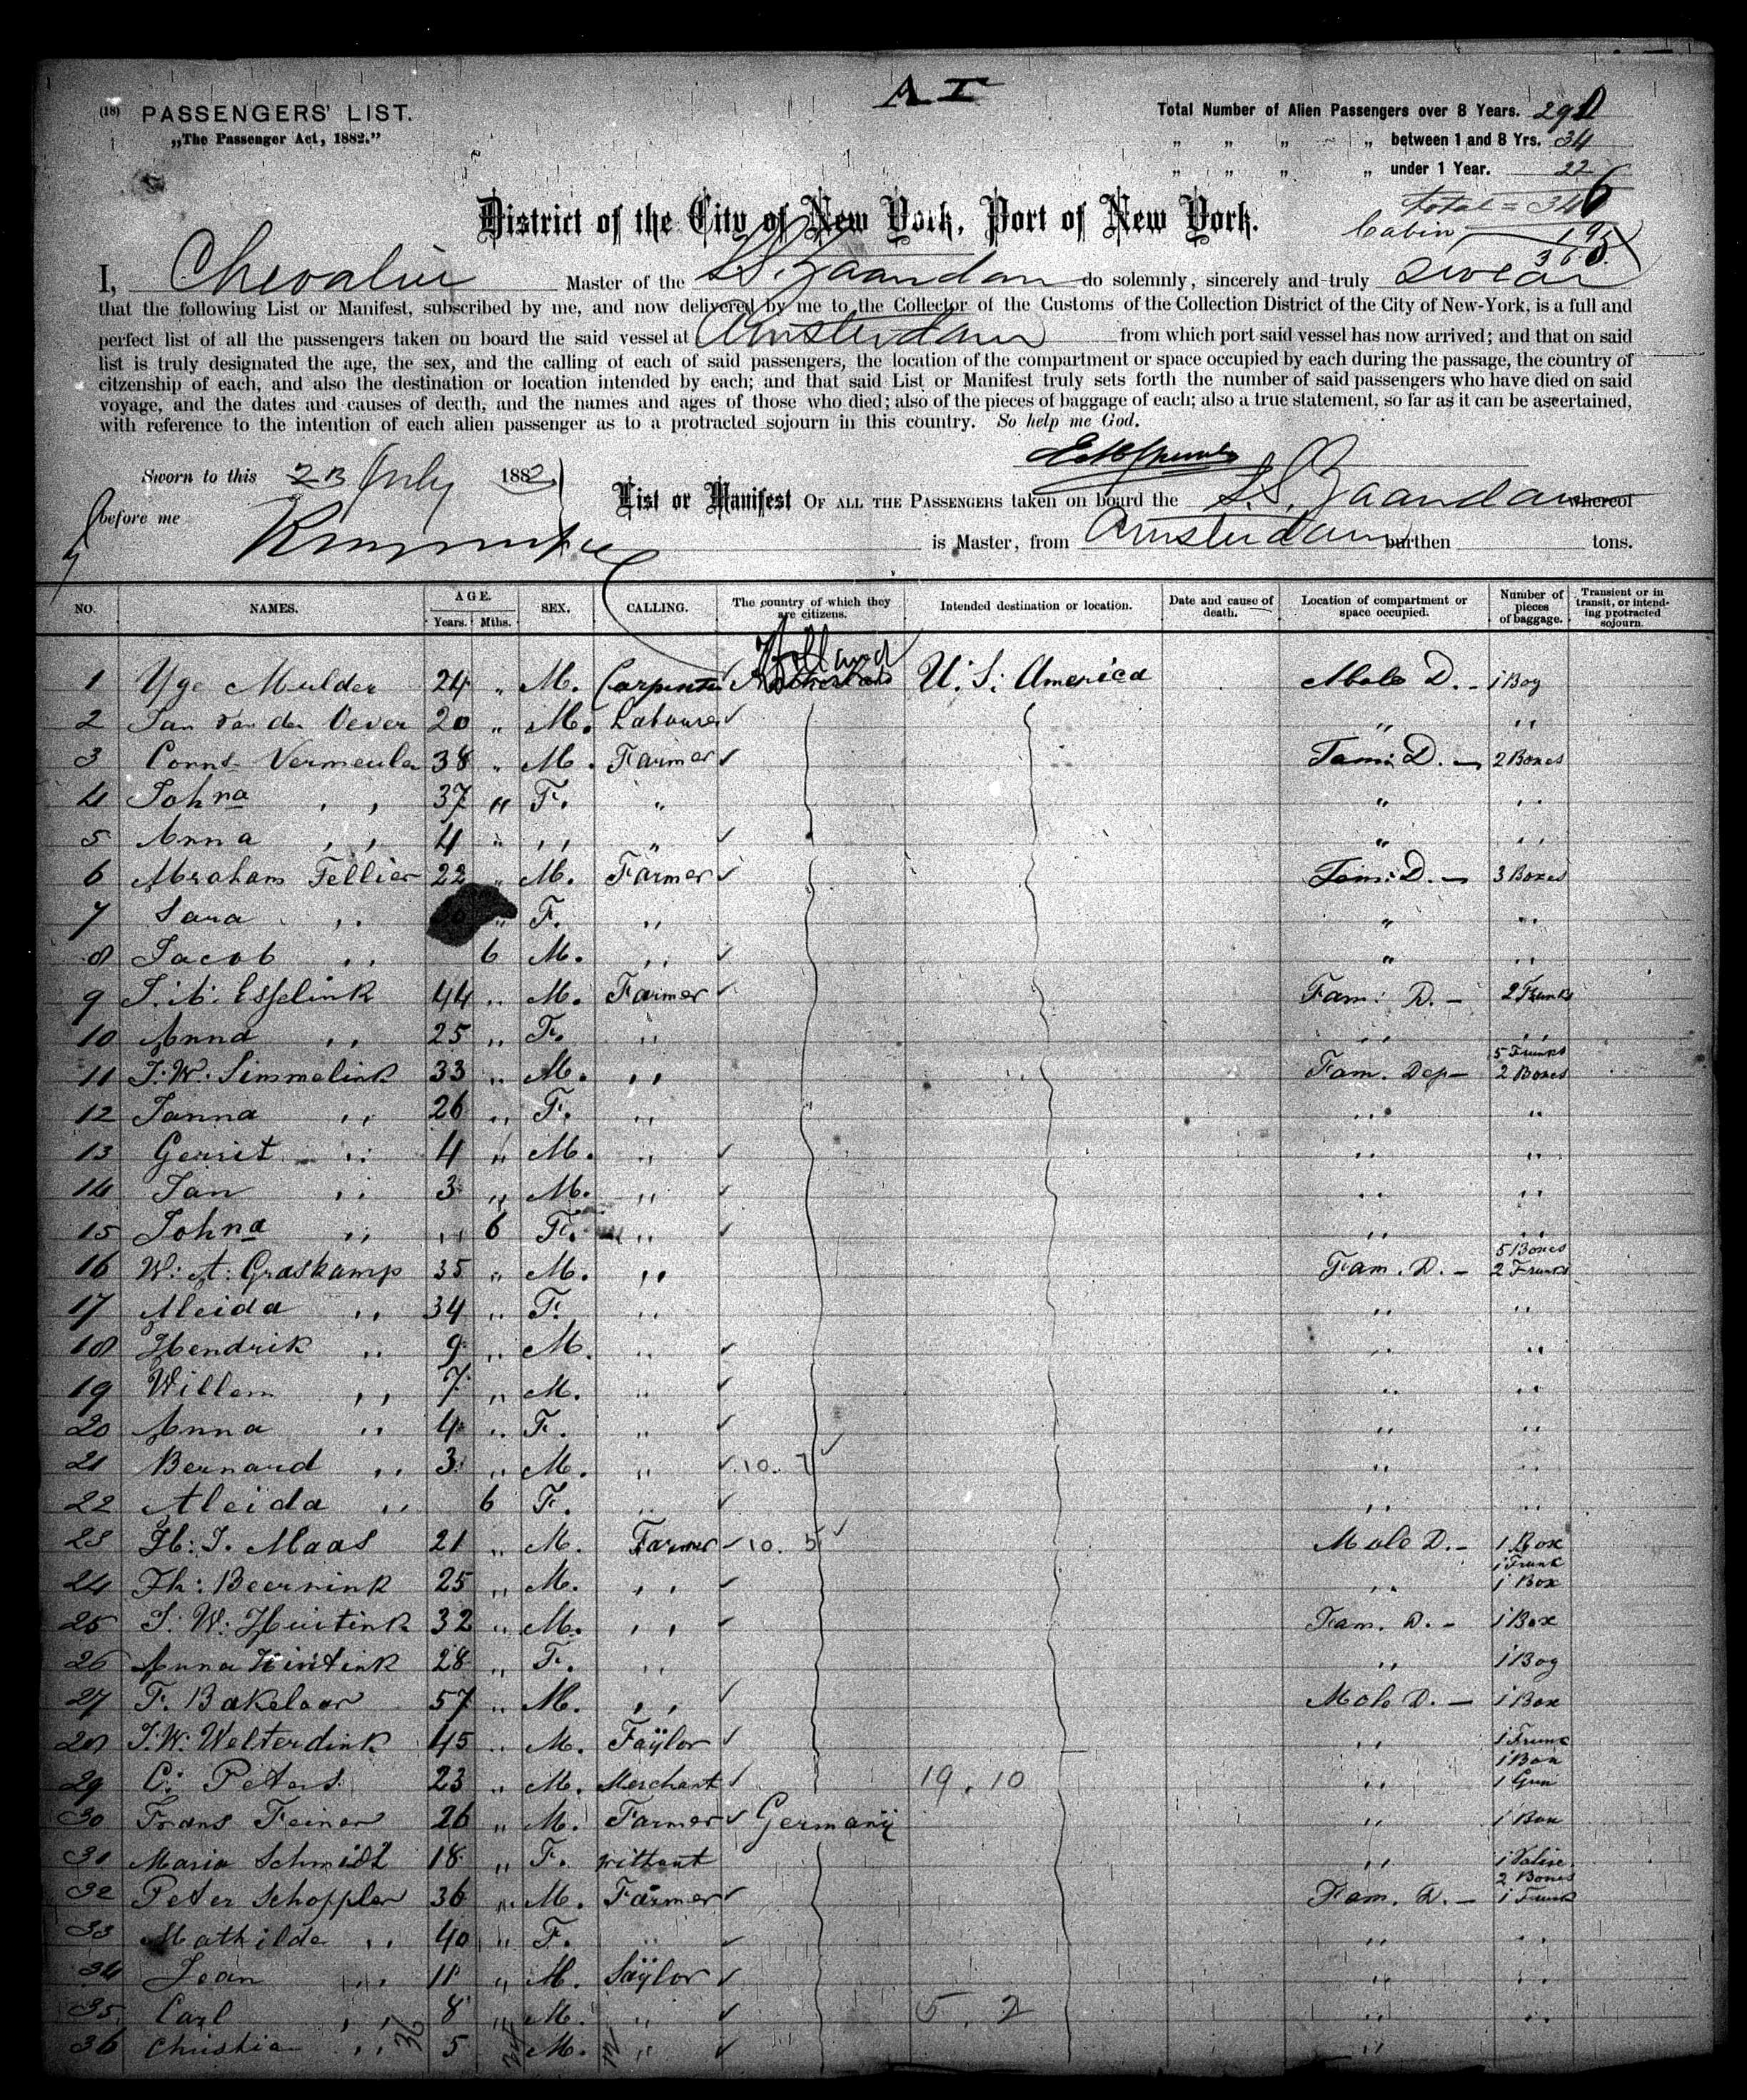 A I
(18) PASSENGERS' LIST.
„The Passenger Act, 1882."
Total Number of Alien Passengers over 8 Years. 290
„ „ „ „ between 1 and 8 Yrs. 34
„ „ „ „ under 1 Year. 22
Total = 346
Cabin
District of the City of New York, Port of New York.
I, Chevalier Master of the S.S. Zaandam do solemnly, sincerely and truly swear
that the following List or Manifest, subscribed by me, and now delivered by me to the Collector of the Customs of the Collection District of the City of New-York, is a full and
perfect list of all the passengers taken on board the said vessel at Amsterdam from which port said vessel has now arrived; and that on said
list is truly designated the age, the sex, and the calling of each of said passengers, the location of the compartment or space occupied by each during the passage, the country of
citzenship of each, and also the destination or location intended by each; and that said List or Manifest truly sets forth the number of said passengers who have died on said
voyage, and the dates and causes of death, and the names and ages of those who died; also of the pieces of baggage of each; also a true statement, so far as it can be ascertained,
with reference to the intention of each alien passenger as to a protracted sojourn in this country. So help me God.
Sworn to this July 1882
before me
List or Manifest OF ALL THE PASSENGERS taken on board the S.S. Zaandam whereof
is Master, from Amsterdam burthen tons.
NO. NAMES. AGE. Years. Mths. SEX. CALLING. The country of which they are citizens. Intended destination or location. Date and cause of death. Location of compartment or space occupied. Number of pieces of baggage. Transient or in transit, or intending protracted sojourn.
1 Yge Mulder 24 „ M. Carpenter Holland U. S. America Male D. - 1 Bag
2 Jan van den Oever 20 „ M. Labourer „ „
3 Corns Vermeulen 38 „ M. Farmer Fam: D. - 2 Boxes
4 Johna „ 37 „ F. „ „ „
5 Anna „ 4 „ „ „ „ „
6 Abraham Tellier 22 „ M. Farmer Fam: D. - 3 Boxes
7 Sara „ „ F. „ „ „
8 Jacob „ 6 M. „ „ „
9 J. A. Esselink 44 „ M. Farmer Fam: D. - 2 Trunks
10 Anna „ 25 „ F. „ „ „
11 J. W. Simmelink 33 „ M. „ Fam. Dep - 5 Trunks 2 Boxes
12 Janna „ 26 „ F. „ „ „
13 Gerrit „ 4 „ M. „ „ „
14 Jan „ 3 „ M. „ „ „
15 Johna „ „ 6 F. „ „ „
16 W. A. Graskamp 35 „ M. „ Fam. D. - 5 Boxes 2 Trunks
17 Aleida „ 34 „ F. „ „ „
18 Hendrik „ 9 „ M. „ „ „
19 Willem „ 7 „ M. „ „ „
20 Anna „ 4 „ F. „ „ „
21 Bernard „ 3 „ M. „ 10. „ „
22 Aleida „ 6 F. „ „ „
23 H. J. Maas 21 „ M. Farmer 10. 5 Male D. - 1 Box
24 Th: Beernink 25 „ M. „ „ 1 Trunk 1 Box
25 J. W. Huitink 32 „ M. „ Fam. D. - 1 Box
26 Anna Hiritink 28 „ F. „ „ 1 Bag
27 F. Bakelaar 57 „ M. „ Male D. - 1 Box
28 J. W. Welterdink 45 „ M. Taÿlor „ 1 Trunk
29 C: Peters 23 „ M. Merchant 19. 10 „ 1 Box 1 Gun
30 Frans Feiner 26 „ M. Farmer Germanÿ „ 1 Box
31 Maria Schmidt 18 „ F. without „ 1 Valise
32 Peter Schoppler 36 „ M. Farmer Fam. D. - 2 Boxes 1 Trunk
33 Mathilde „ 40 „ F. „ „ „
34 Jean „ 11 „ M. Saÿlor „ „
35 Carl „ 8 „ M. „ 5. 2 „ „
36 Christian „ 5 „ M. „ „
36